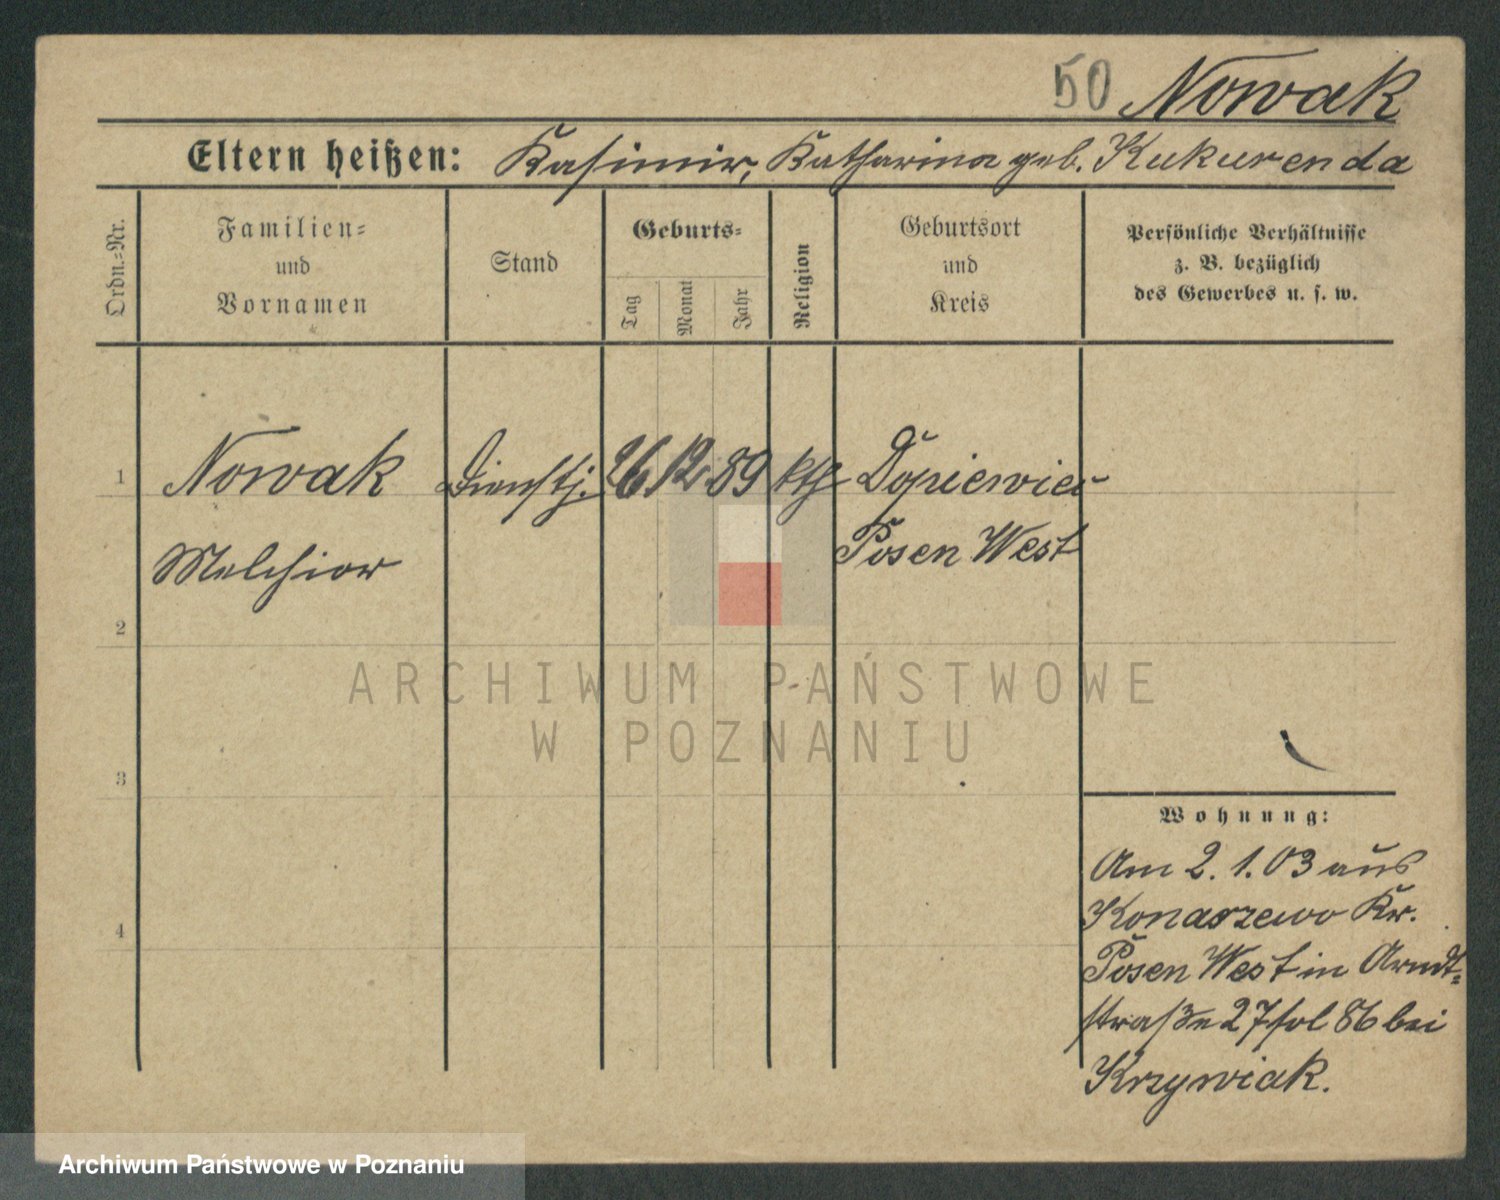 50 Nowak
Eltern heißen: Kasimir, Katharina geb. Kukurenda
Ordn.-Nr.
Familien-
und
Vornamen
Stand
Geburts-
Tag
Monat
Jahr
Religion
Geburtsort
und
Kreis
Persönliche Verhältnisse
z. B. bezüglich
des Gewerbes u. s. w.
1 Nowak Dienstj. 26 12. 89 kth Dopiewiec
Melchior Posen West
2
3
4
Wohnung:
Am 2. 1. 03 aus
Konarzewo Kr.
Posen West in Arndt-
straße 27 fol 86 bei
Krzywiak.
ARCHIWUM PAŃSTWOWE
W POZNANIU
Archiwum Państwowe w Poznaniu